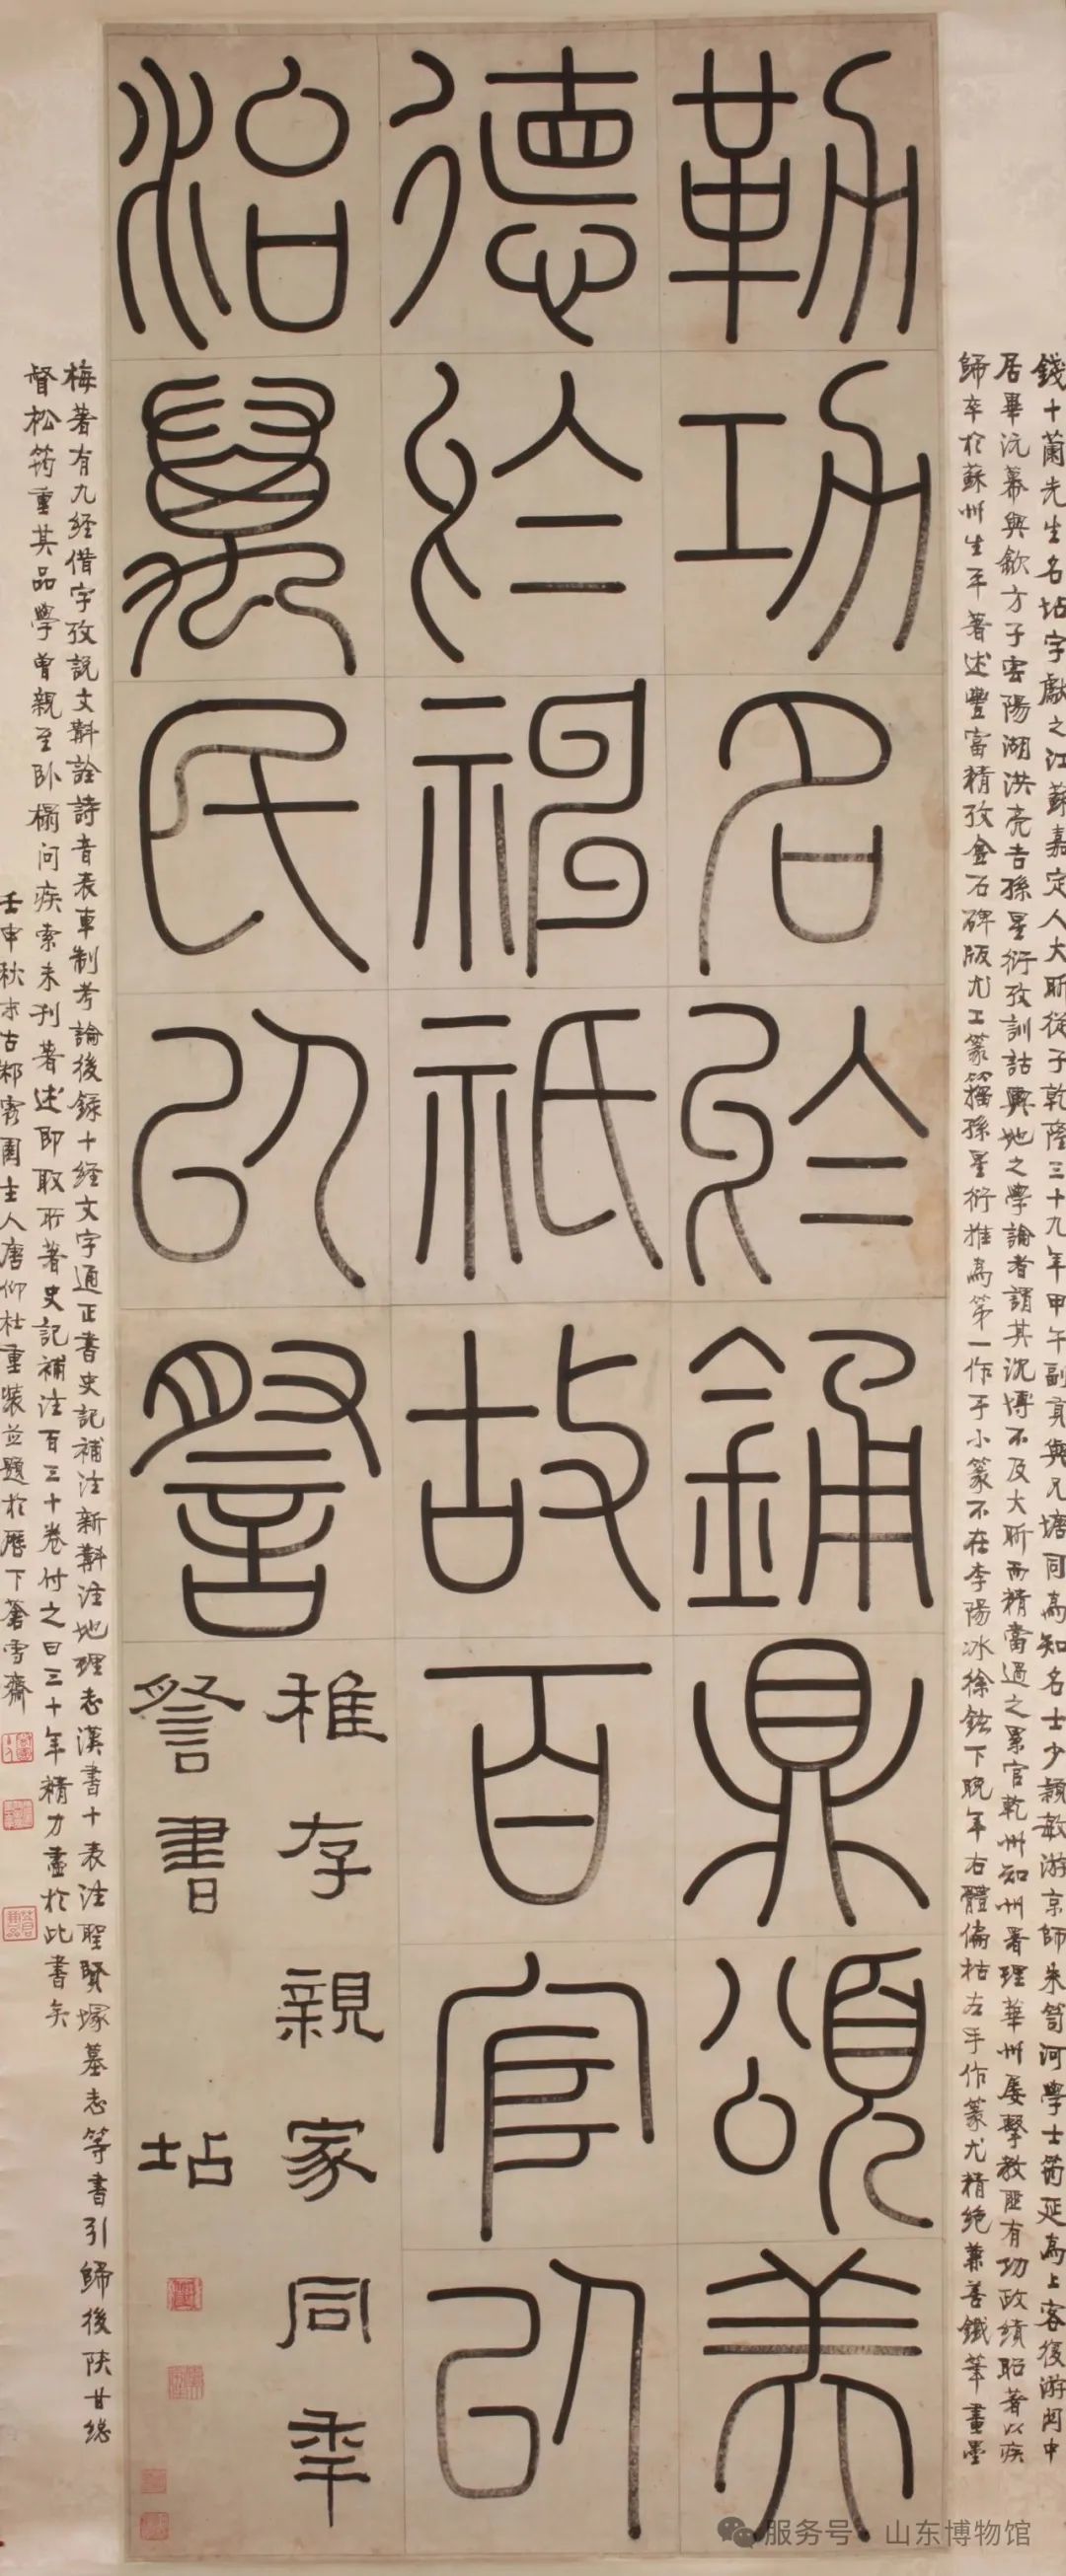 錢十蘭先生名坫字獻之江蘇嘉定人大昕從子乾隆三十九年甲午副貢與兄塘同為知名士少穎敏游京師朱笥河學士筠延為上客後游関中
居畢沅幕與歙方子雲陽湖洪亮吉孫星衍攷訓詁輿地之學論者謂其沉博不及大昕而精當過之累官乾州知州署理華州屢擊教匪有功政績昭著以疾
歸卒於蘇州生平著述豐富精攷金石碑版尤工篆籀孫星衍推為第一作于小篆不在李陽冰徐鉉下晚年右體偏枯左手作篆尤精絶兼善鐵筆畫墨
勒功名於銿鼎頌美
德於神祇故百官以
治萬民以詧
稚存親家同年
詧書 坫
梅著有九經借字攷說文斠詮詩音表車制考論後錄十經文字通正書史記補注新斠注地理志漢書十表注聖賢塚墓志等書引歸後陝甘總
督松筠重其品學曾親至臥榻問疾索未刊著述即取所著史記補注百三十卷付之曰三十年精力盡於此書矣
壬申秋末古鄒園主人唐仰杜重裝並題於歷下蒼雪齋
服务号 山东博物馆